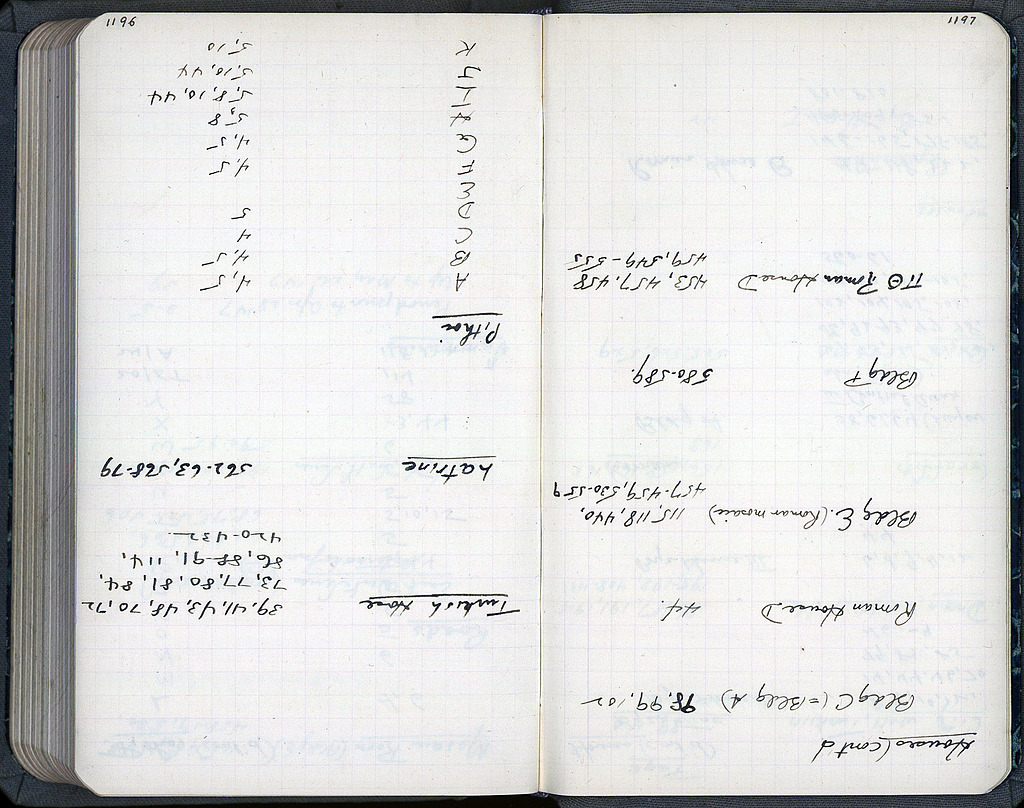 1197
Houses (cont'd
Bldg C (= Bldg A) 98, 99, 102
Roman House D 44.
Bldg E. (Roman mosaic) 115, 118, 440,
457-459, 530-559
Bldg F 580-589.
ΠΘ Roman House D 453, 457, 458
459, 549-555
1196
Turkish House 39, 41, 43, 48, 70, 72
73, 77, 80, 81, 84,
86, 88-91, 114,
420-432
Latrine 562-63, 568-79
Pithoi
A 4, 5
B 4, 5
C 4
D 5
E
F 4, 5
G 4, 5
H 5, 8
I 5, 8, 10, 44
J 5, 10, 44
K 5, 10